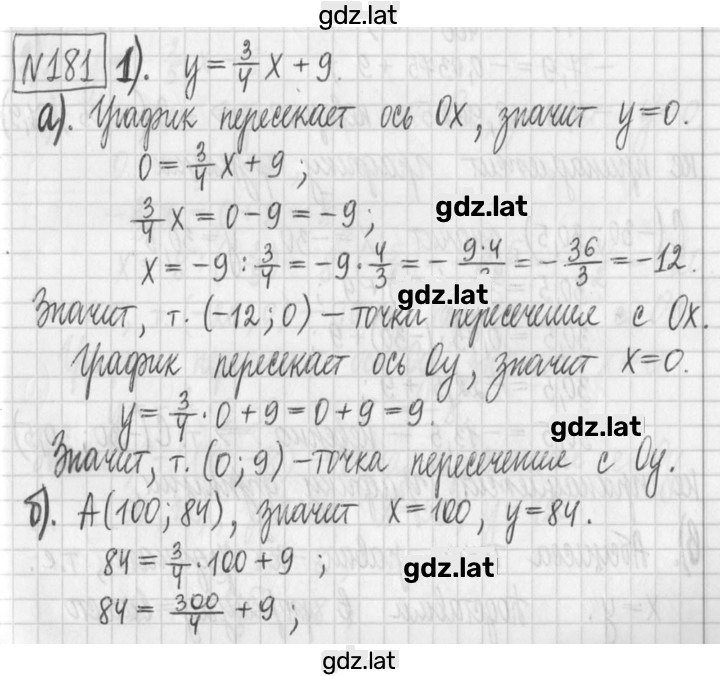 gdz.lat
N181 1). y = 3/4 x + 9.
а). График пересекает ось Ox, значит y=0.
0 = 3/4 x + 9 ;
3/4 x = 0 - 9 = -9;
gdz.lat
x = -9 : 3/4 = -9 · 4/3 = - 9·4/3 = - 36/3 = -12.
gdz.lat
Значит, т. (-12; 0) - точка пересечения с Ox.
График пересекает ось Oy, значит x=0.
y = 3/4 · 0 + 9 = 0 + 9 = 9.
gdz.lat
Значит, т. (0; 9) - точка пересечения с Oy.
б). A(100; 84), значит x=100, y=84.
84 = 3/4 · 100 + 9 ;
gdz.lat
84 = 300/4 + 9 ;
gdz.lat